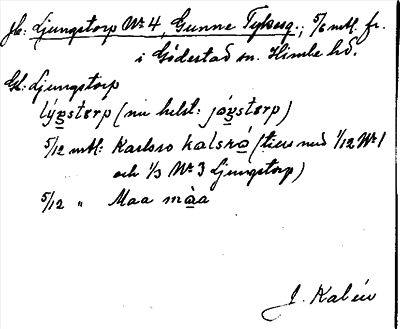 jfr: Ljungstorp Nr 4, Gunne Tykesg.; 5/6 mtl. fr.
i Gödestad sn. Himle hd.
Gl: Ljungstorp
lýŋstorp (nu helst: jóŋstorp)
5/12 mtl: Karlsro kalsró (tiens med 1/12 Nr 1
och 1/3 Nr 3 Ljungstorp)
5/12 " Maa màa
J. Kalén